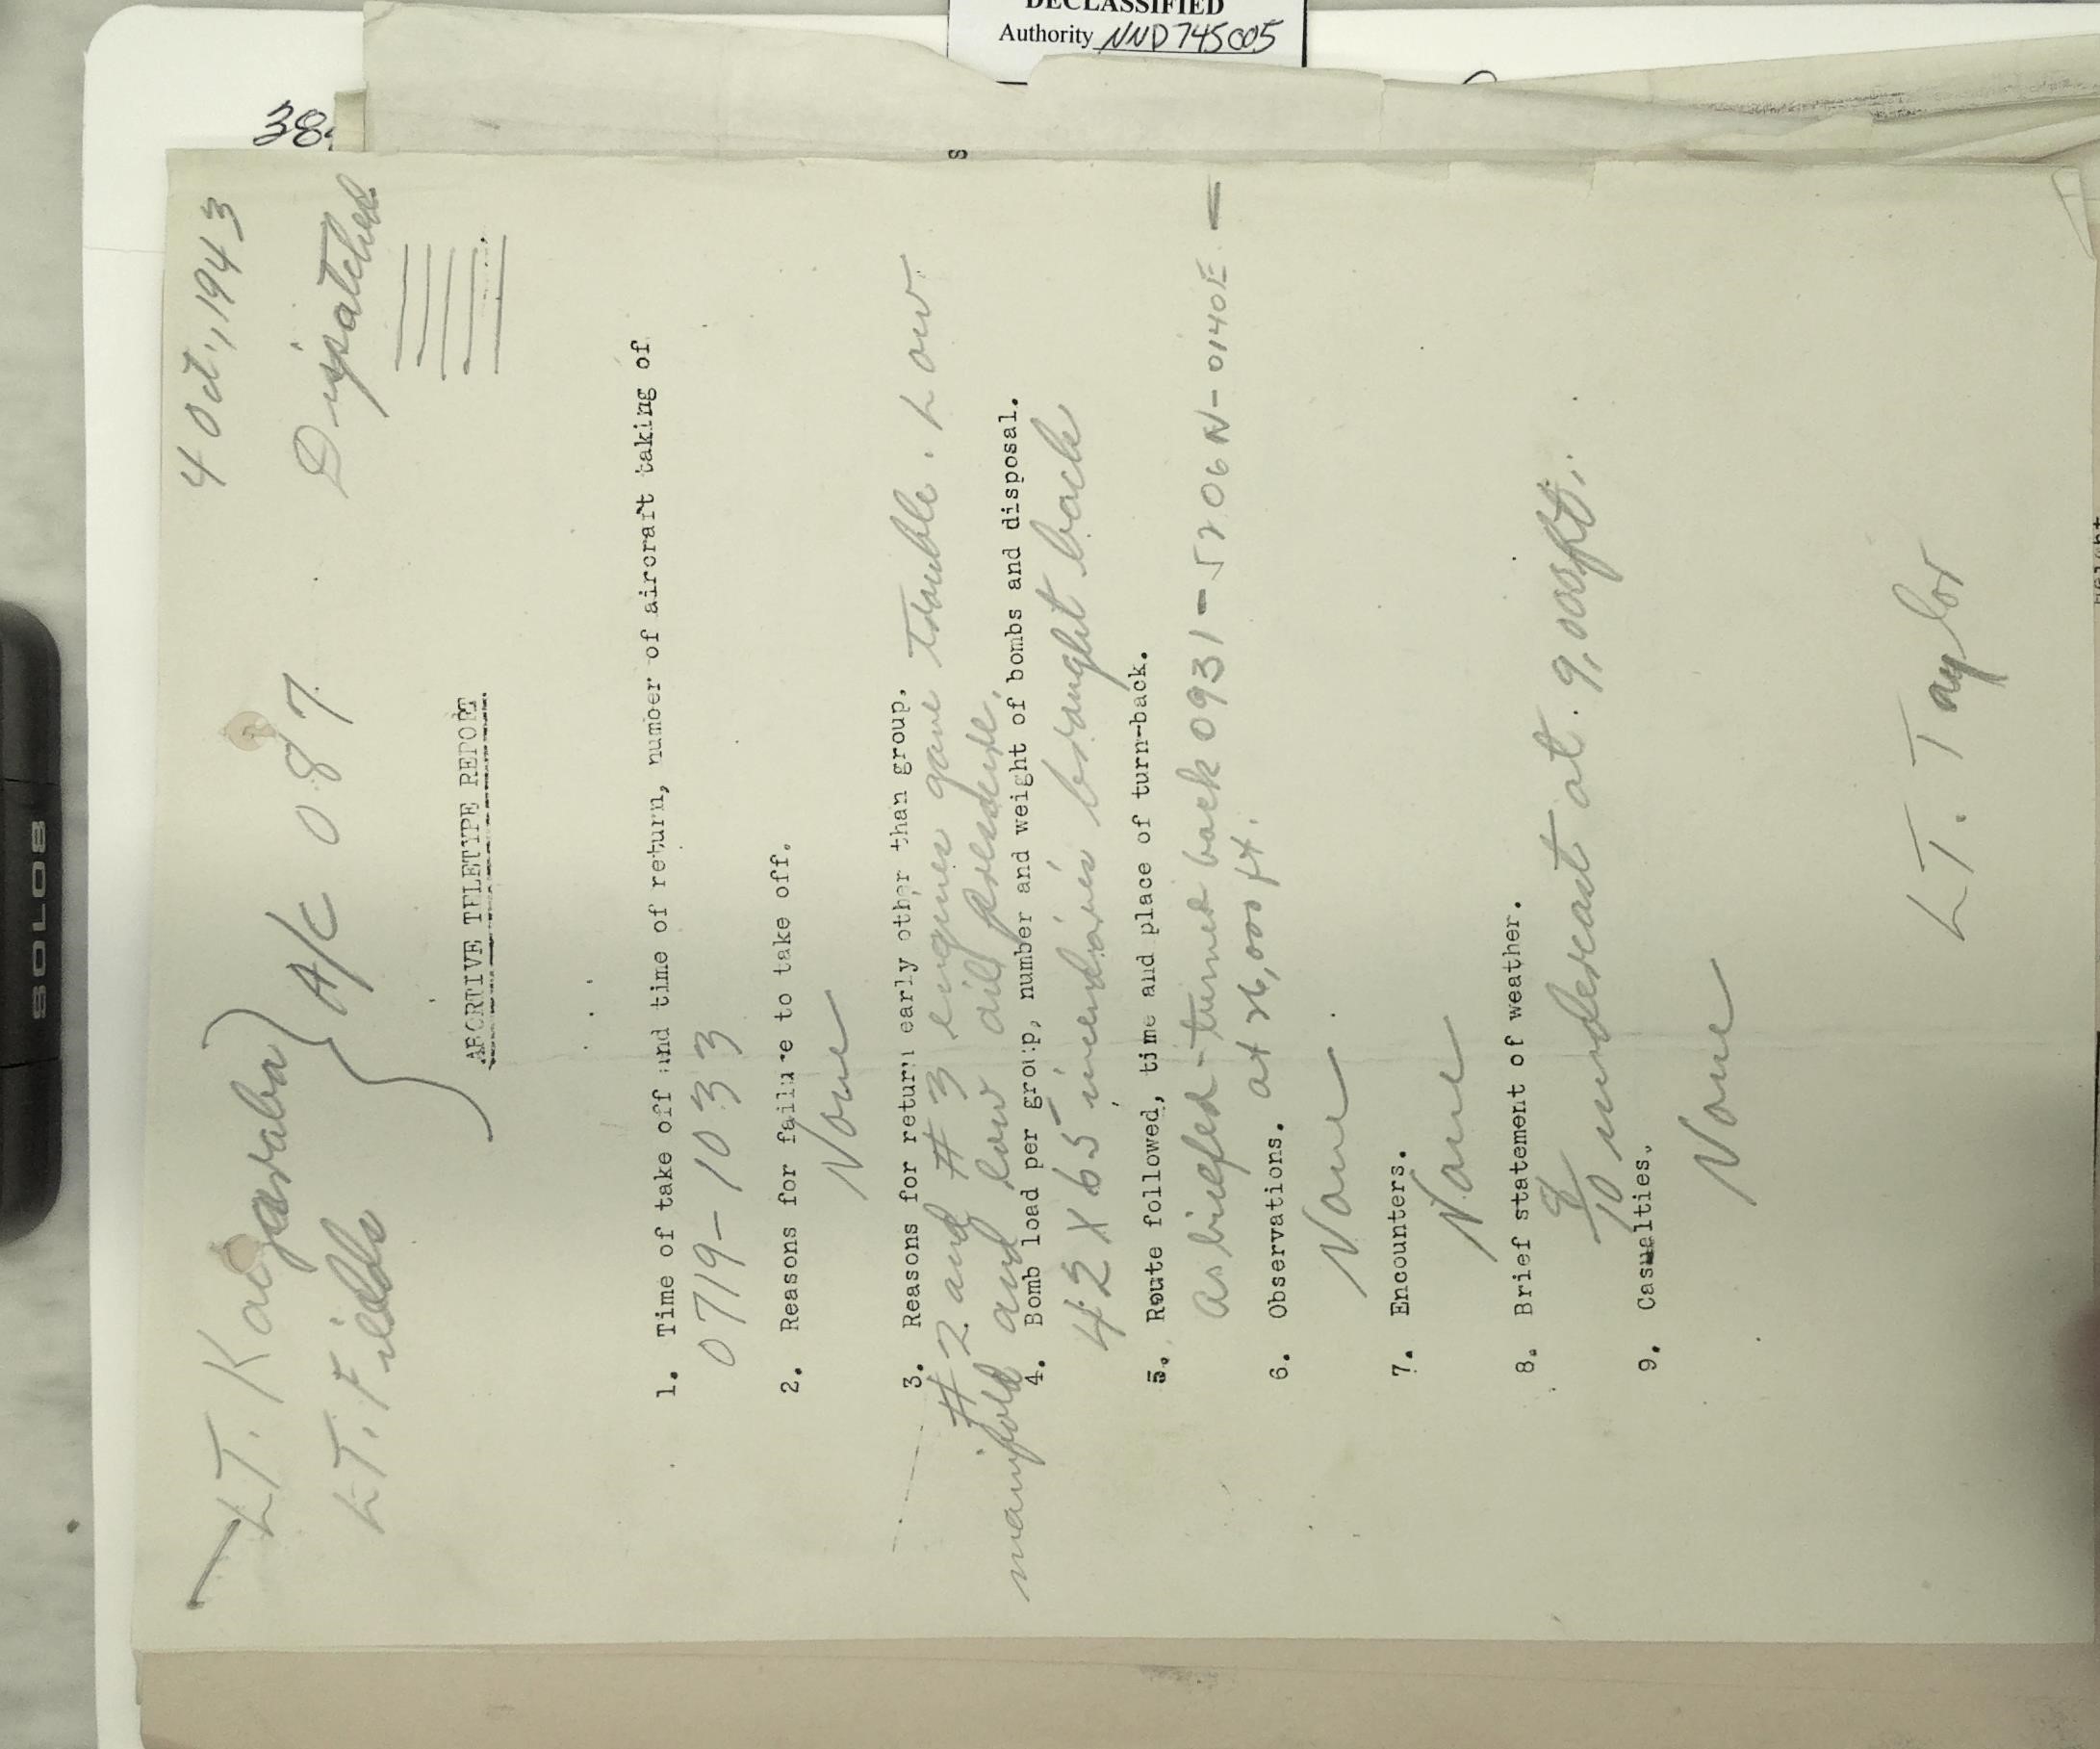 DECLASSIFIED
Authority NND745005
38
SOLO8
4 Oct., 1943
LT. Kaezaraba
LT. Fields
A/C 087
Dispatched
ABORTIVE TELETYPE REPORT
1. Time of take off and time of return, number of aircraft taking of
0719-1033
2. Reasons for failure to take off.
None
3. Reasons for return early other than group.
#2 and #3 engines gave trouble. Low
manifold and low oil pressure.
4. Bomb load per group, number and weight of bombs and disposal.
42 X 65 incendiaries brought back
5. Route followed, time and place of turn-back.
As briefed - turned back 0931 - 5206N - 0140E -
at 26,000 ft.
6. Observations.
None
7. Encounters.
None
8. Brief statement of weather.
/10 undercast at 9,000 ft.
9. Casuelties.
None
LT. Taylor
s